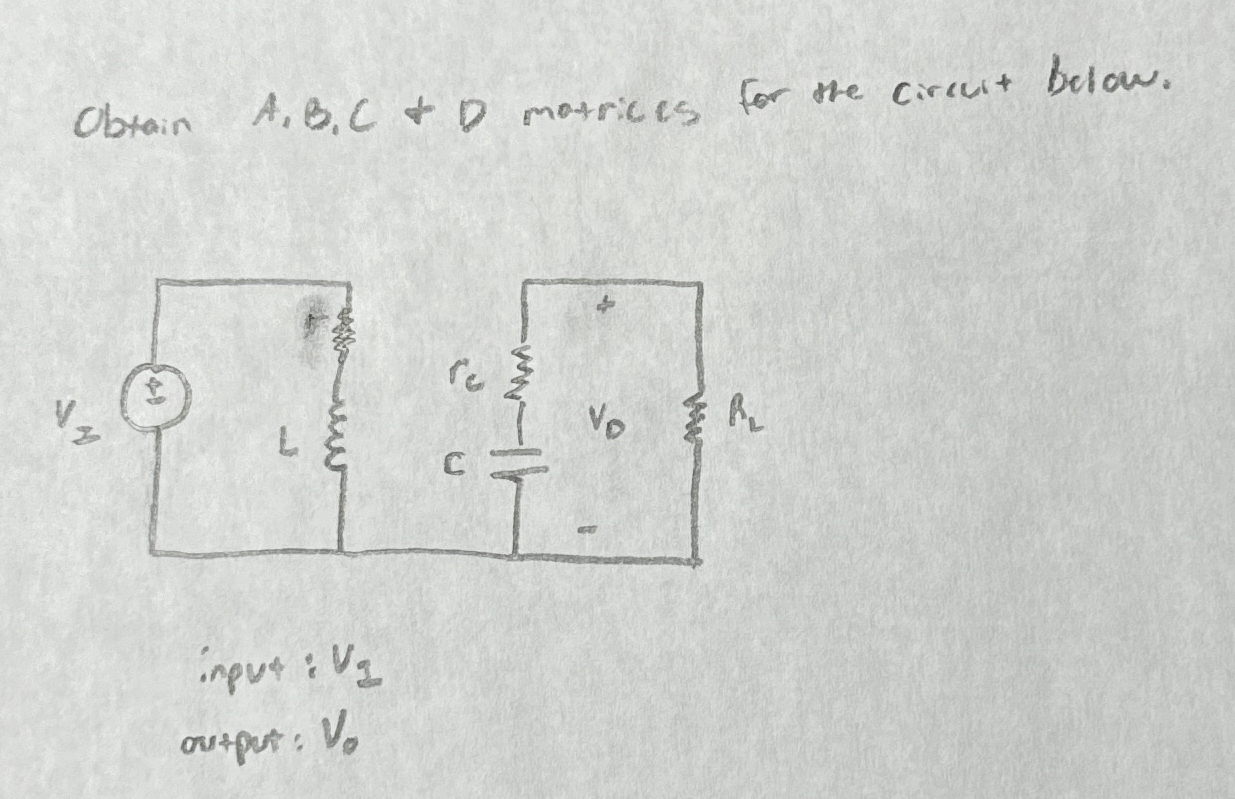 Obtain A, B, C & D matrices for the circuit below.
+
r
+
-
V_I
L
r_c
C
V_o
R_L
-
input : V_I
output : V_o